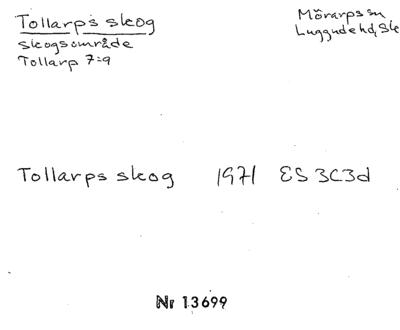 Tollarps skog
Mörarps sn
skogsområde
Luggude hd, Sk
Tollarp 7:9
Tollarps skog 1971 ES 3C3d
Nr 13699